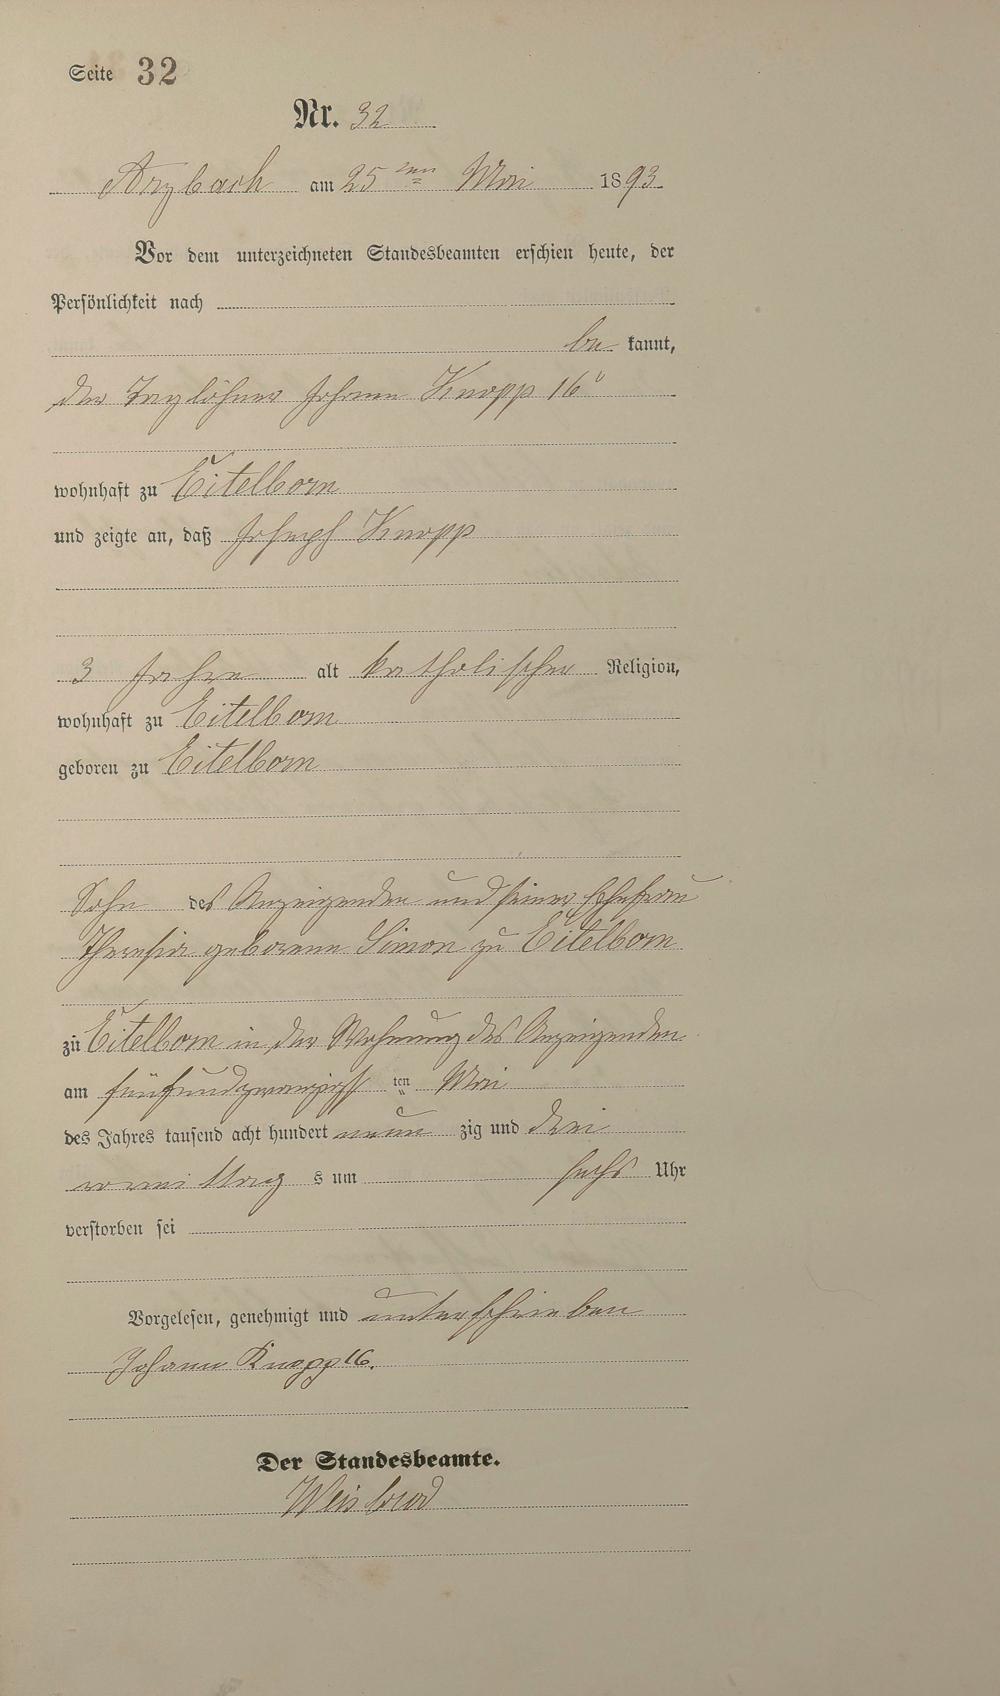 Seite 32
Nr. 32
Arzbach am 25 ten Mai 1893
Vor dem unterzeichneten Standesbeamten erschien heute, der
Persönlichkeit nach
be kannt,
der Taglöhner Johann Knopp 16r
wohnhaft zu Eitelborn
und zeigte an, daß Joseph Knopp
3 Jahre alt katholischer Religion,
wohnhaft zu Eitelborn
geboren zu Eitelborn
Sohn des Anzeigenden und seiner Ehefrau
Theresia geborene Simon zu Eitelborn
zu Eitelborn in der Wohnung des Anzeigenden
am fünfundzwanzigst ten Mai
des Jahres tausend acht hundert neun zig und drei
vormittag s um sechs Uhr
verstorben sei
Vorgelesen, genehmigt und unterschrieben
Johann Knopp 16.
Der Standesbeamte.
Weisbrod